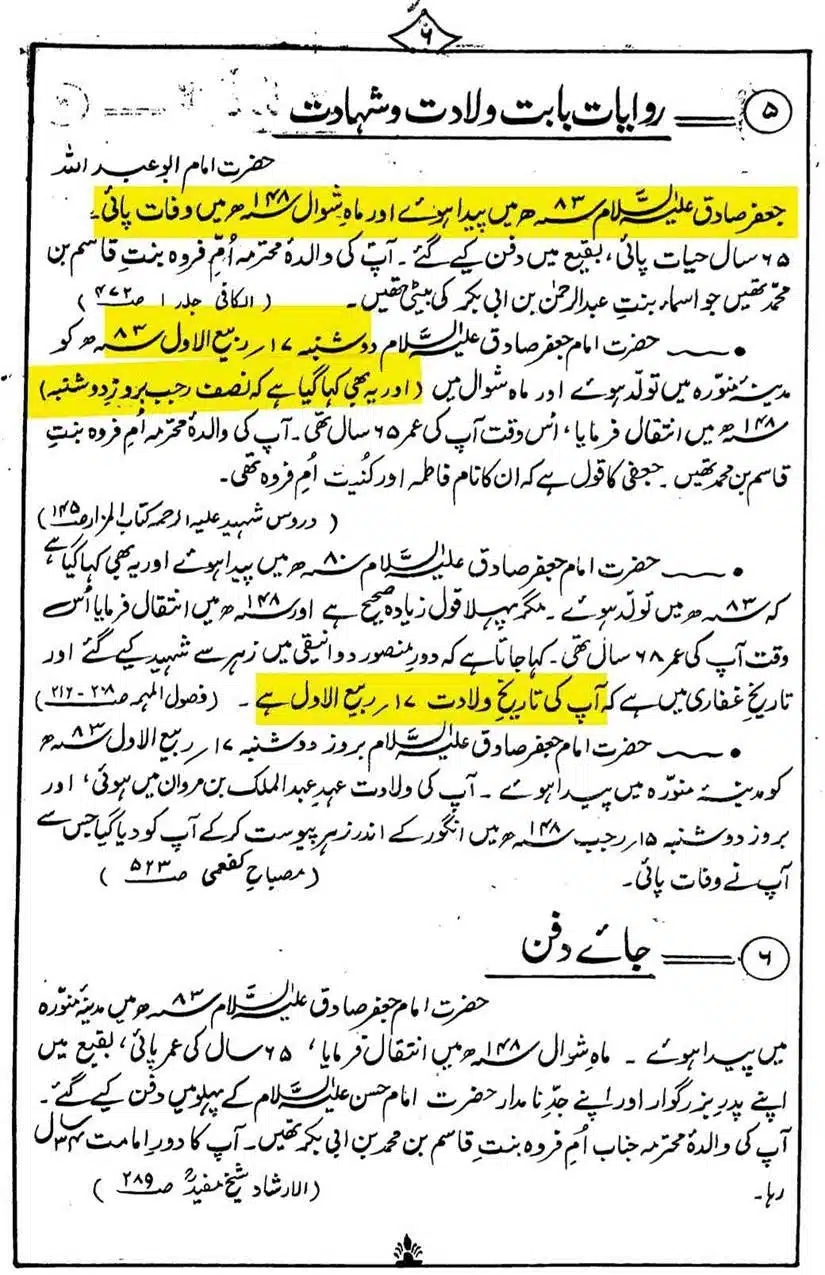 ۶
۵ روایات بابت ولادت و شہادت
حضرت امام ابو عبد اللہ
جعفر صادق علیہ السلام ۸۳ سنہ ھ میں پیدا ہوئے اور ماہ شوال ۱۴۸ سنہ ھ میں وفات پائی۔
۶۵ سال حیات پائی، بقیع میں دفن کیے گئے۔ آپ کی والدۂ محترمہ اُمِّ فروہ بنتِ قاسم بن
محمد تھیں جو اسماء بنتِ عبدالرحمٰن بن ابی بکر کی بیٹی تھیں۔ (الکافی جلد ۱ صـ۴۷۲)
• ــــ حضرت امام جعفر صادق علیہ السلام دوشنبہ ۱۷؍ ربیع الاول ۸۳ سنہ ھ کو
مدینۂ منورہ میں تولد ہوئے اور ماہ شوال میں (اور یہ بھی کہا گیا ہے کہ نصف رجب بروز دوشنبہ)
۱۴۸ سنہ ھ میں انتقال فرمایا، اُس وقت آپ کی عمر ۶۵ سال تھی۔ آپ کی والدۂ محترمہ اُمِ فروہ بنتِ
قاسم بن محمد تھیں۔ جعفی کا قول ہے کہ ان کا نام فاطمہ اور کُنیت اُم فروہ تھی۔
(دروس شہید علیہ الرحمہ کتاب المزار صـ۱۴۵)
• ــــ حضرت امام جعفر صادق علیہ السلام ۸۰ سنہ ھ میں پیدا ہوئے اور یہ بھی کہا گیا ہے
کہ ۸۳ سنہ ھ میں تولد ہوئے۔ مگر پہلا قول زیادہ صحیح ہے اور ۱۴۸ سنہ ھ میں انتقال فرمایا اُس
وقت آپ کی عمر ۶۸ سال تھی۔ کہا جاتا ہے کہ دورِ منصور دوانیقی میں زہر سے شہید کیے گئے اور
تاریخِ غفاری میں ہے کہ آپ کی تاریخِ ولادت ۱۷؍ ربیع الاول ہے۔ (فصول المہمہ صـ۲۶۸-۲۱۲)
• ــــ حضرت امام جعفر صادق علیہ السلام بروز دوشنبہ ۱۷؍ ربیع الاول ۸۳ سنہ ھ
کو مدینۂ منورہ میں پیدا ہوئے۔ آپ کی ولادت عہدِ عبدالملک بن مروان میں ہوئی، اور
بروز دوشنبہ ۱۵؍ رجب ۱۴۸ سنہ ھ میں انگور کے اندر زہر پیوست کر کے آپ کو دیا گیا جس سے
آپ نے وفات پائی۔ (مصباح کفعمی صـ۵۲۳)
۶ جائے دفن
حضرت امام جعفر صادق علیہ السلام ۸۳ سنہ ھ میں مدینۂ منورہ
میں پیدا ہوئے۔ ماہِ شوال ۱۴۸ سنہ ھ میں انتقال فرمایا، ۶۵ سال کی عمر پائی، بقیع میں
اپنے پدر بزرگوار اور اپنے جدِّ نامدار حضرت امام حسن علیہ السلام کے پہلو میں دفن کیے گئے۔
آپ کی والدۂ محترمہ جناب اُمِ فروہ بنتِ قاسم بن محمد بن ابی بکر تھیں۔ آپ کا دورِ امامت ۳۴ سال
رہا۔ (الارشاد شیخ مفید صـ۲۸۹)